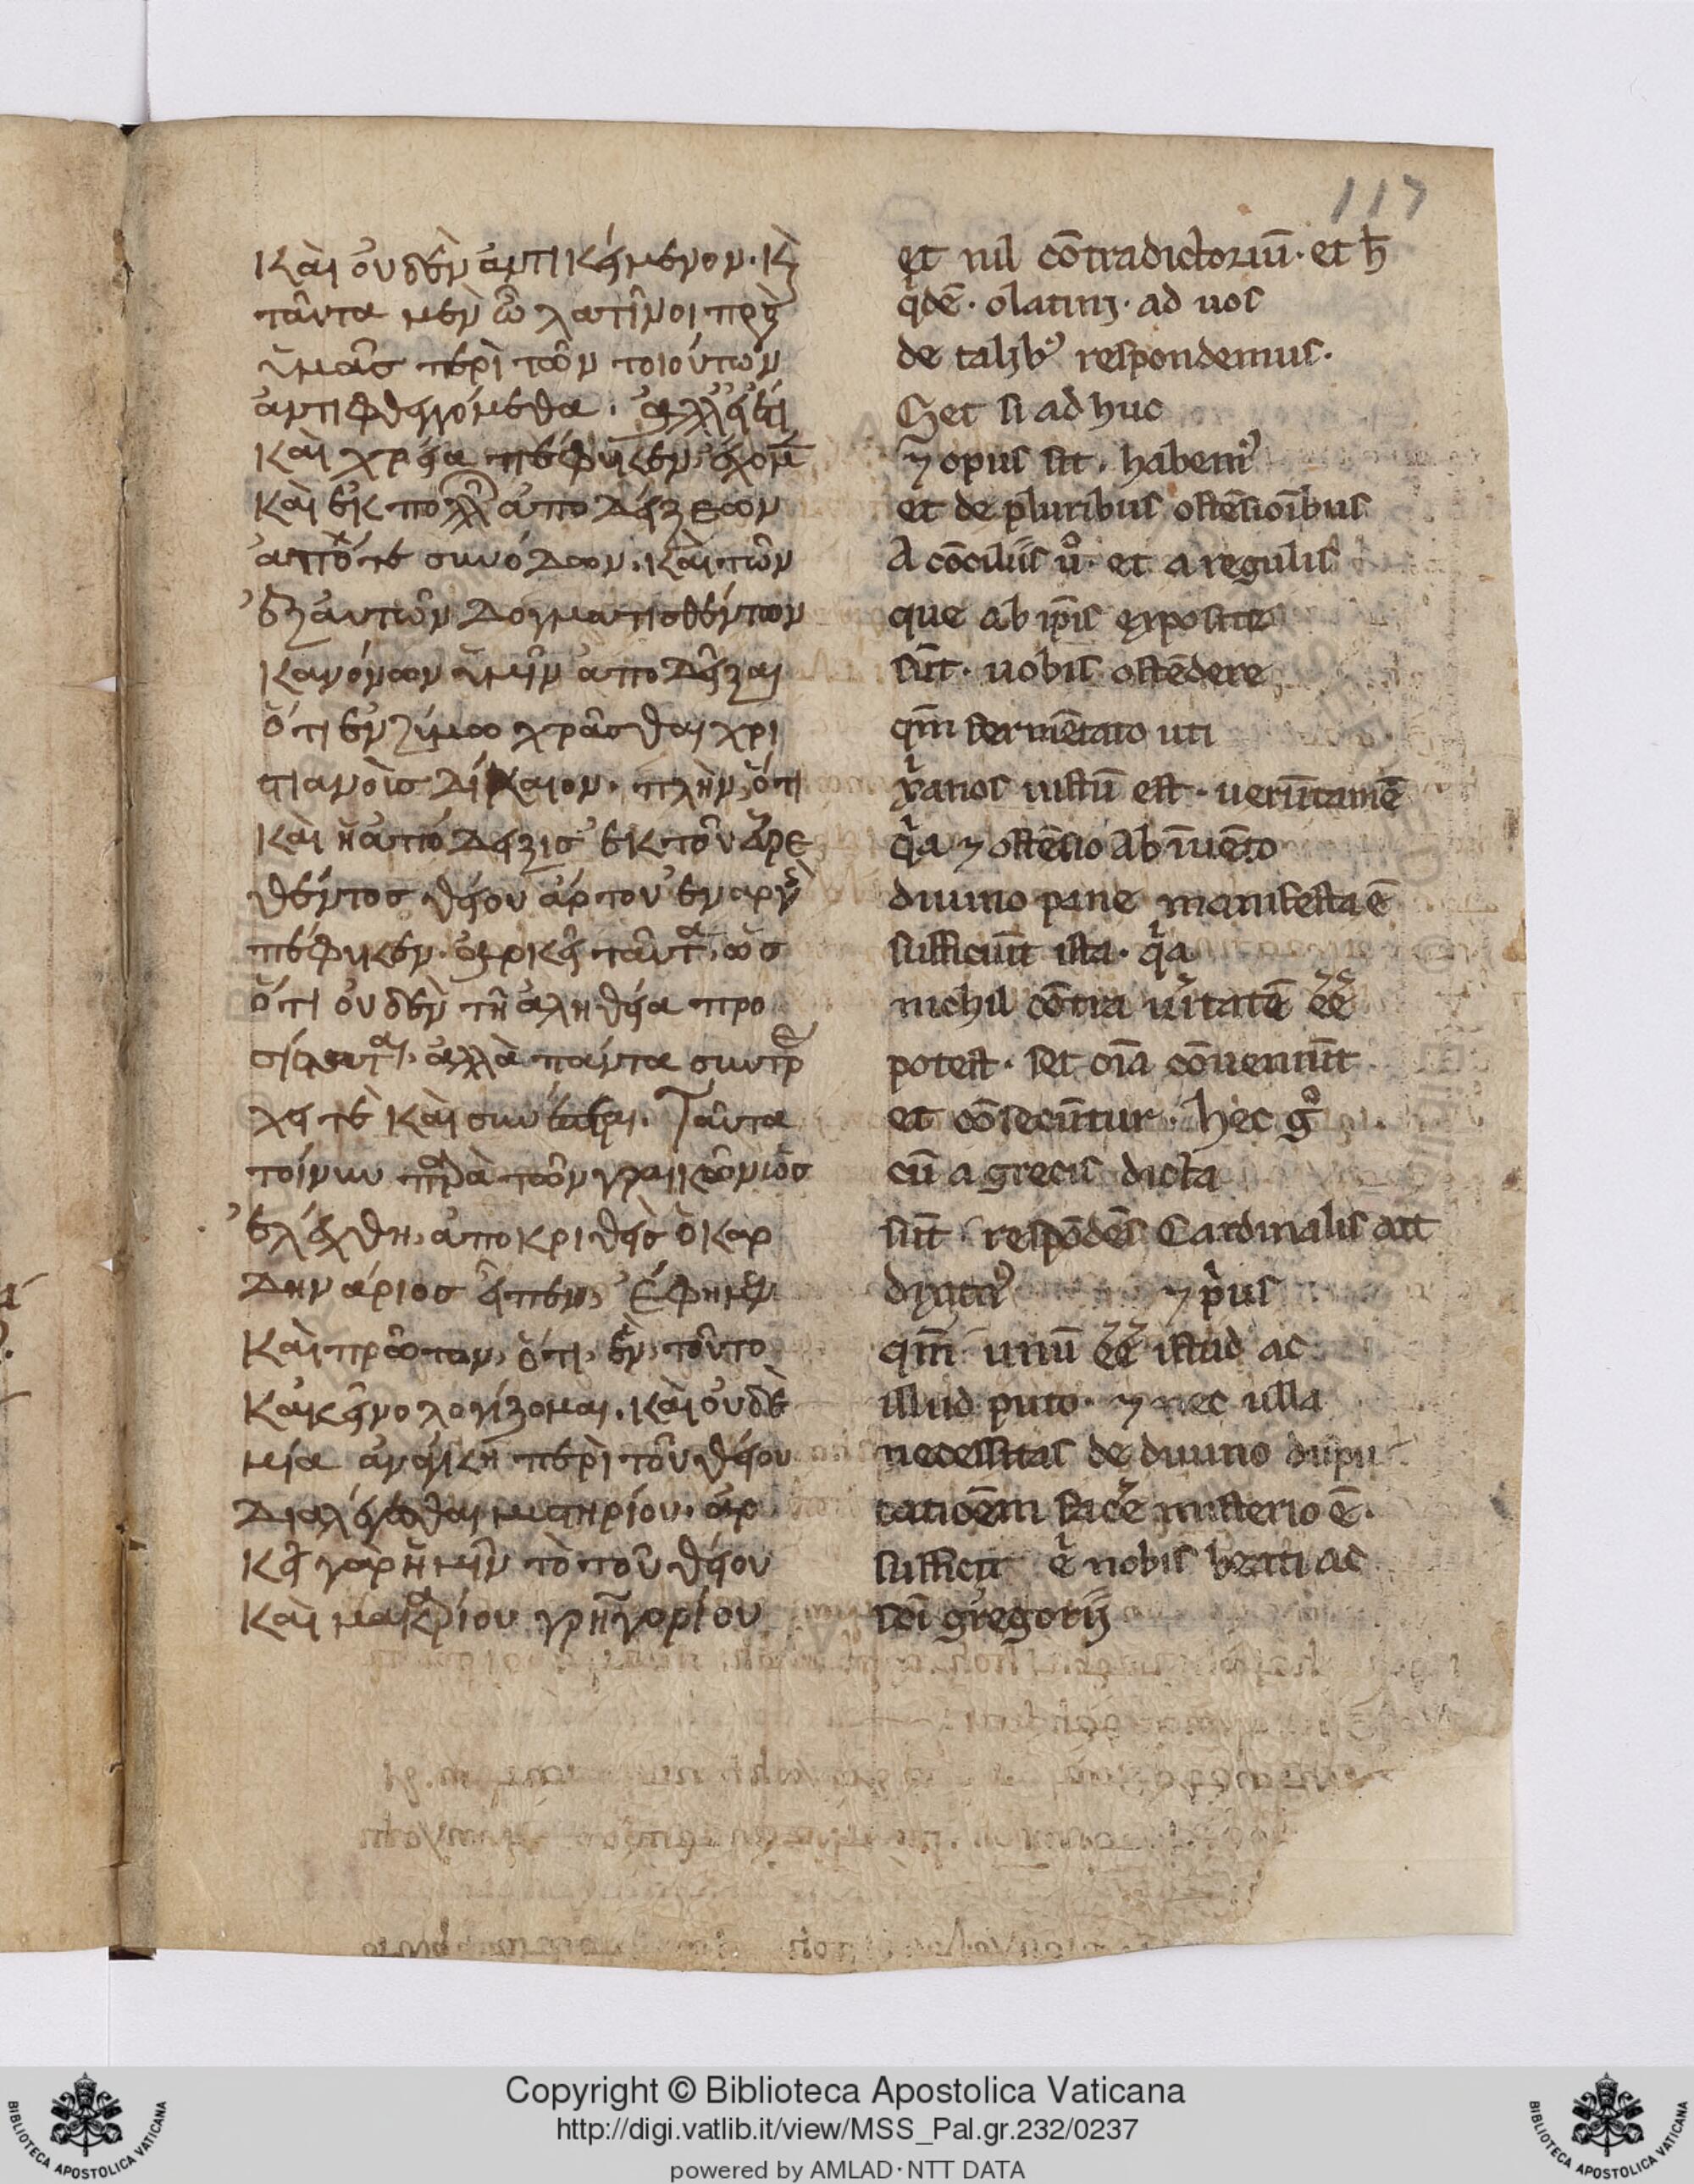 117
Καὶ οὐδὲν ἀντικείμενον. Κ̀
ταῦτα μὲν ὦ λατῖνοι πρὸς
ὑμᾶς περὶ τῶν τοιούτων
ἀντιφθεγγόμεθα. ἀλλ' εἰ ἔτι
Καὶ χρεία πέφυκεν, ἔχομ̅
Καὶ ἐκ πολλ ἀποδείξεων
ἀπό τε συνόδων. Καὶ τῶν
ἐξ αὐτῶν δογματισθέντων
Κανόνων ὑμῖν ἀποδεῖξαι
ὅτι ἐνζύμω χρᾶσθαι χρι
στιανοῖς δίκαιον. πλὴν, ὅτι
Καὶ ἡ ἀπόδειξις ἐκ τοῦ εὑρε
θέντος θείου ἄρτου ἐναργὴς
πέφυκεν. ἀρκεῖ ταῦτα, ὡς
ὅτι οὐδὲν τῆ ἀληθεία προ
σίσταται. ἀλλὰ πάντα συντρέ
χει τε Καὶ συνέπεται. Ταῦτα
τοίνυν παρὰ τῶν γραικῶν ὡς
ἐλέχθη, ἀποκριθεὶς ὁ Καρ
δηνάριος εἶπεν, Ἔφημεν
Καὶ πρῶτον, ὅτι, ἓν, τοῦτο
Κἀκεῖνο λογίζομαι. Καὶ οὐδὲ
μία ἀνάγκη περὶ τοῦ θείου
διαλέγεσθαι μυστηρίου. ἀρ
Κεῖ γὰρ ἡμῖν τὸ τοῦ θείου
Καὶ μακαρίου γρηγορίου
et nil cōtradictoriū. et h̄
q̇dē. o latinj. ad uos
de talib⁹ respondemus.
Set si ad huc
⁊ opus sit. habem⁹
et de pluribus ostēsioībus
A cōciliis u̇. et a regulis
que ab ip̄is exposite
sūt. uobis ostēdere
qm̄ fermētato uti
xp̄ianos iustū est. uerūtamē
q̇a ⁊ ostēsio ab īuēto
diuino pane manifesta ē
sufficiūt ista. q̇a
nichil cōtra u̇itatē ēē
potest. set oīa cōueniūt
et cōsecūtur. hec g̊
cū a grecis dicta
sūt. respōdēs Cardinalis ait
dixim⁹ ⁊ ṗus
qm̄ unū ēē istud ac
illud puto. ⁊ nec ulla
necessitas de diuino dispu
tatioēm facē misterio ē.
sufficit ē nobis beati ac
sc̄i gregorij
Copyright © Biblioteca Apostolica Vaticana
http://digi.vatlib.it/view/MSS_Pal.gr.232/0237
powered by AMLAD·NTT DATA
BIBLIOTECA APOSTOLICA VATICANA
BIBLIOTECA APOSTOLICA VATICANA